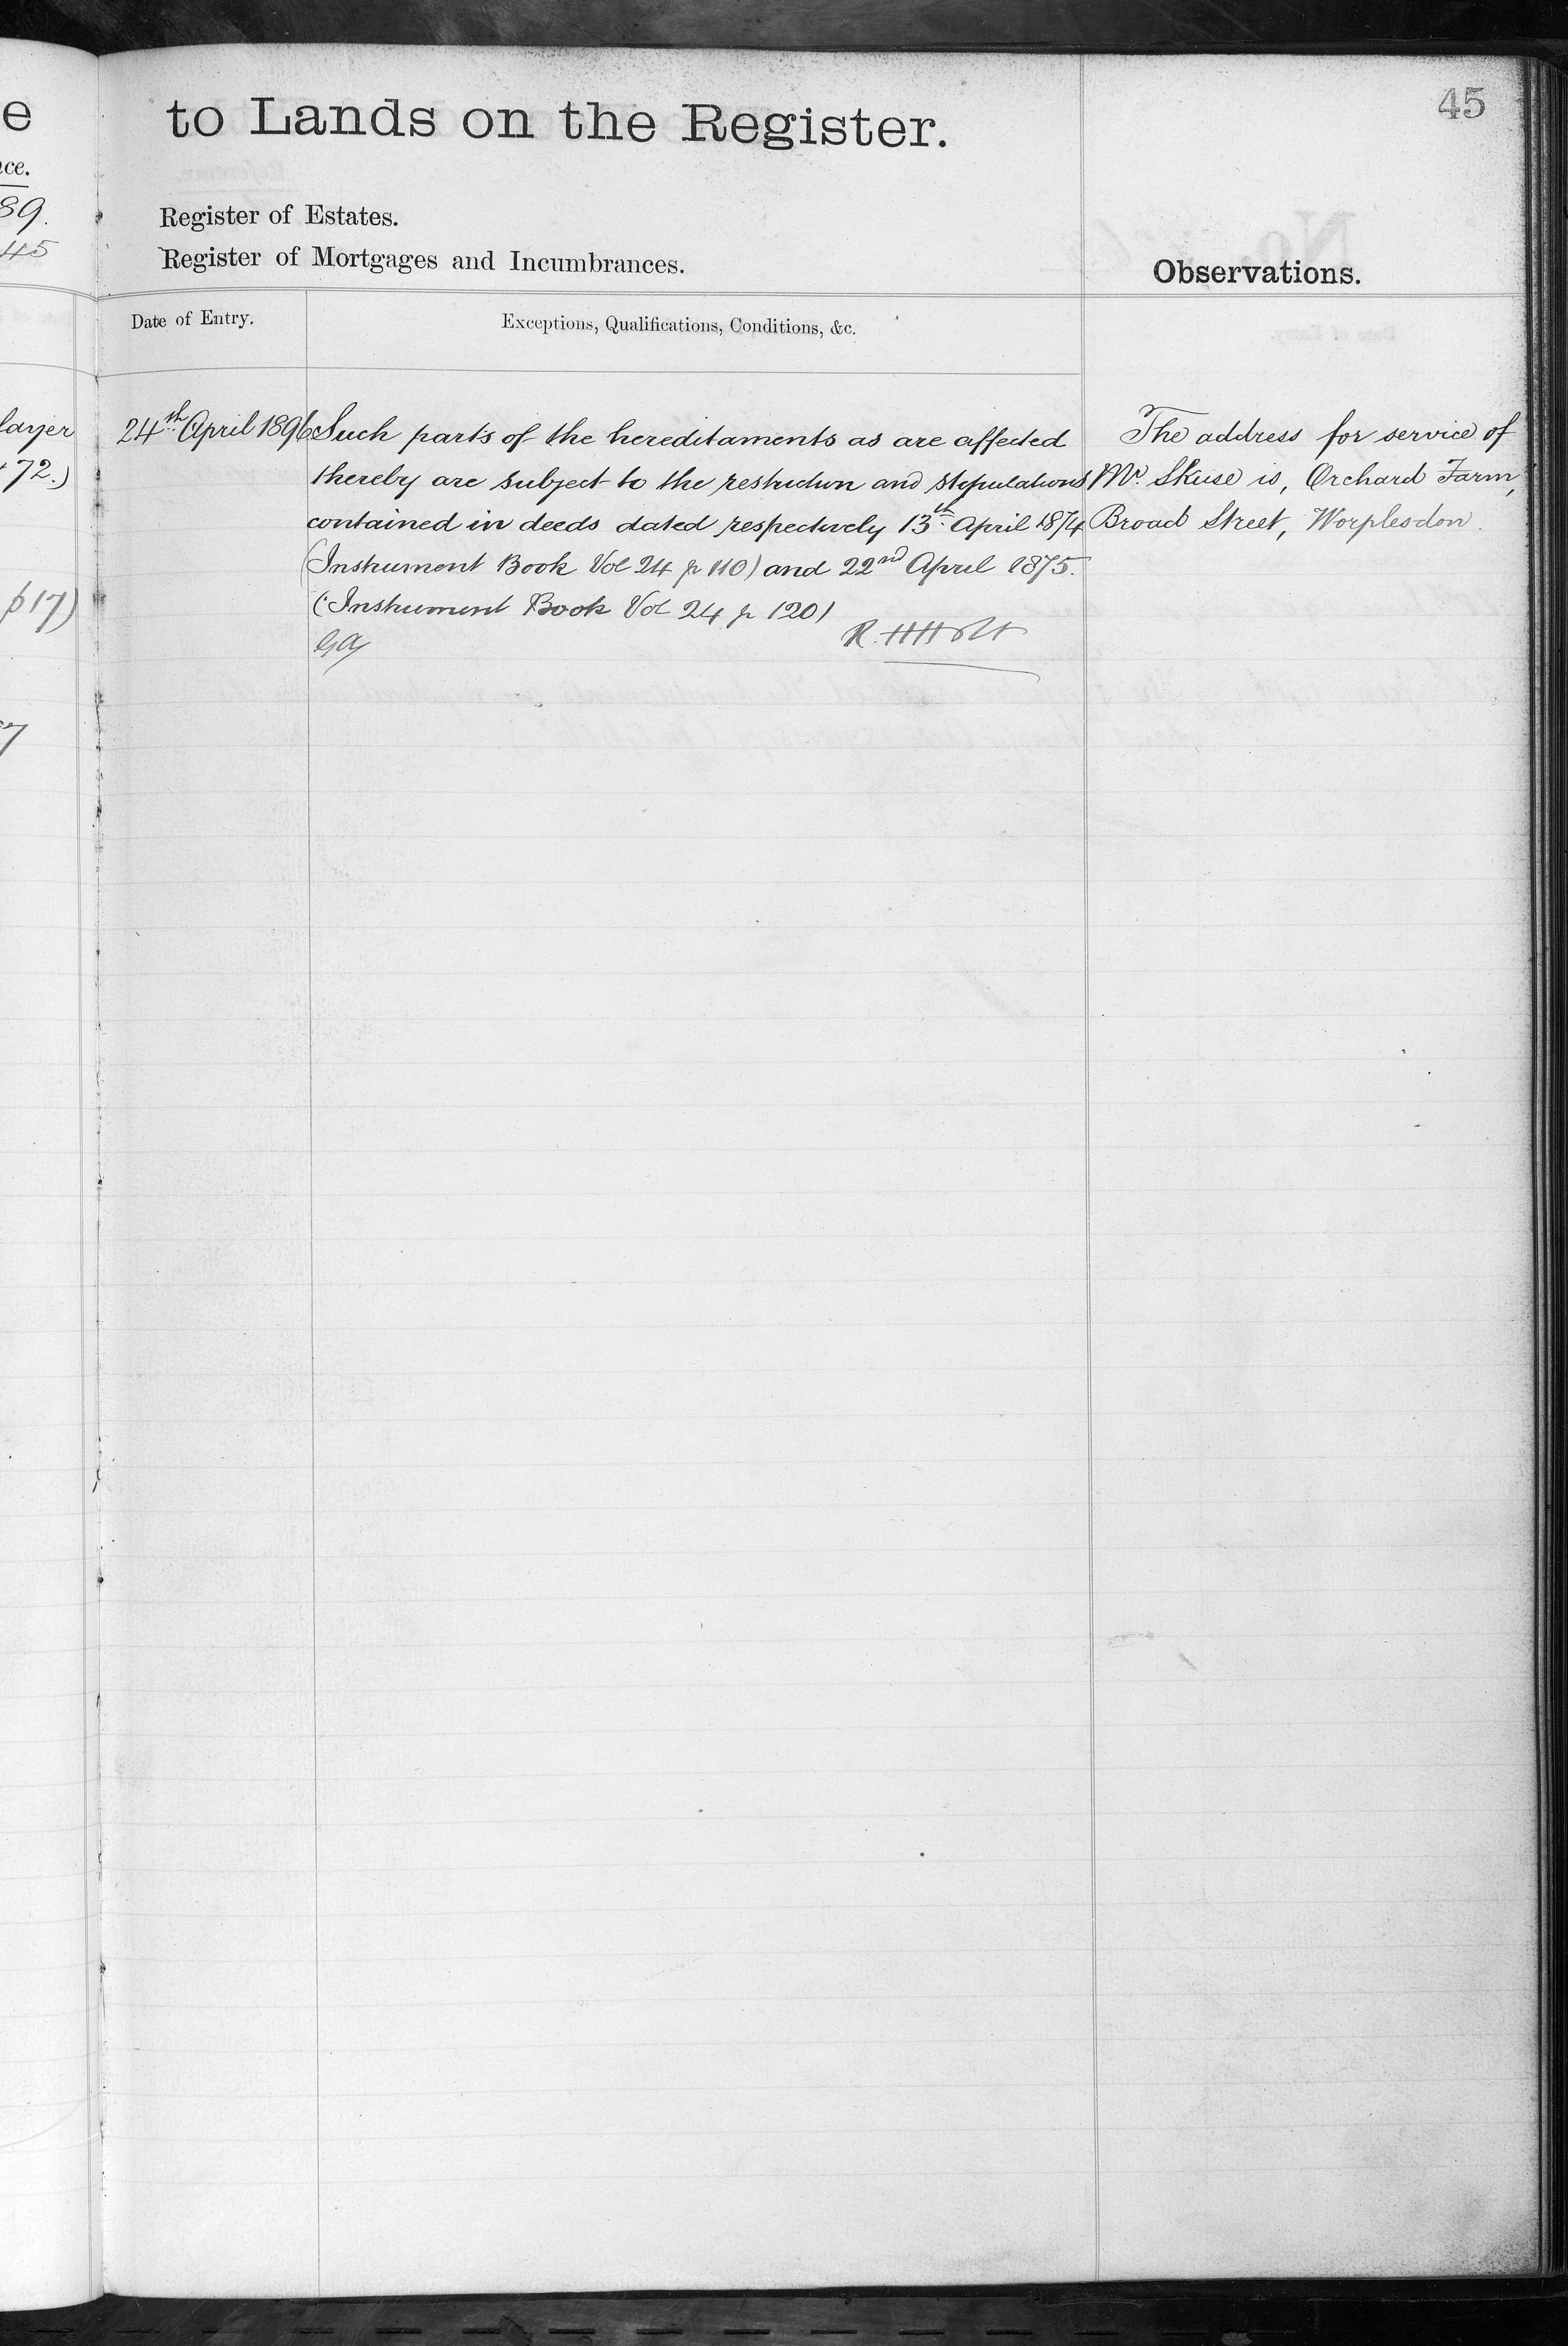 45
to Lands on the Register.
Register of Estates.
Register of Mortgages and Incumbrances.
Observations.
Date of Entry.
Exceptions, Qualifications, Conditions, &c.
24th April 1896
Such parts of the hereditaments as are affected
thereby are subject to the restriction and stipulations
contained in deeds dated respectively 13th April 1874
(Instrument Book Vol 24 p 110) and 22nd April 1875.
(Instrument Book Vol 24 p 120)
The address for service of
Mr. Skuse is, Orchard Farm,
Broad Street, Worplesdon.
e
ce.
89.
45
layer
72.)
p17)
7